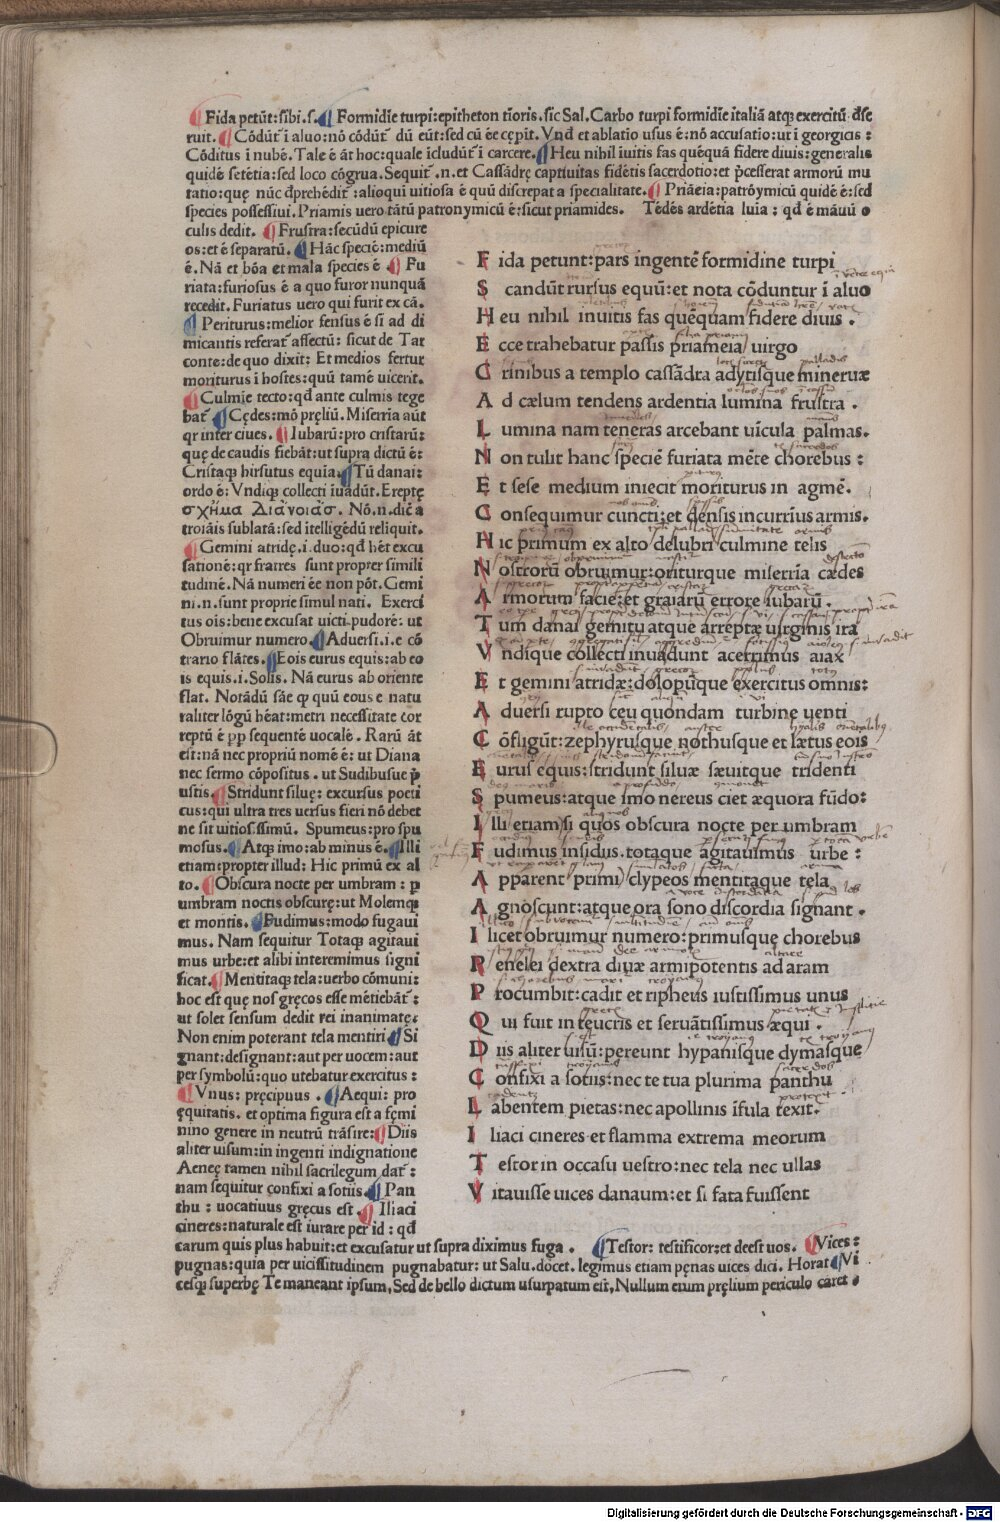 Fida petūt: sibi.s. Formidīe turpi: epitheton tīoris. sic Sal. Carbo turpi formidīe italiā atqꝫ exercitū dꝰse
ruit. Cōdūt̄ ī aluo: nō cōdūt̄ dū eūt: sed cū ēe cępit. Vnd̄ et ablatio usus ē: nō accusatio: ut ī georgicis:
Cōditus ī nubē. Tale ē āt hoc: quale īcludūt̄ ī carcere. Heu nihil īuitis fas quēquā fidere diuis: generalis
quidē setētia: sed loco cōgrua. Sequit̄ .n. et Cassādrę captiuitas fidētis sacerdotio: et p̄cesserat armorū mu
tatio: quę nūc dp̄rehēdit̄: alioqui uitiosa ē quū discrepat a specialitate. Priāeia: patrōymicū quidē ē: sed
species possessiui. Priamis uero tātū patronymicū ē: sicut priamides. Tēdēs ardētia luia: qd̄ ē māuū o
culis dedit. Frustra: secūdū epicure
os: et ē separatū. Hāc speciē: mediū
ē. Nā et bōa et mala species ē Fu
riata: furiosus ē a quo furor nunquā
recedit. Furiatus uero qui furit ex cā.
Periturus: melior sensus ē si ad di
micantis referat̄ affectū: sicut de Tar
conte: de quo dixit: Et medios fertur
moriturus ī hostes: quū tamē uicerit.
Culmīe tecto: qd̄ ante culmis tege
bat̄ Cędes: mō pręliū. Miserrīa aūt
qr inter ciues. Iubarū: pro cristarū:
quę de caudis fiebāt: ut supra dictū ē:
Cristaqꝫ hirsutus equīa. Tū danai:
ordo ē: Vndiqꝫ collecti īuadūt. Ereptę
σχῆμα Διανοιας. Nō .n. dic̄ a
troiāis sublatā: sed ītelligēdū reliquit.
Gemini atridę .i. duo: qd̄ hēt excu
sationē: qr fratres sunt proper simili
tudinē. Nā numeri ēe non pōt. Gemi
ni .n. sunt proprie simul nati. Exerci
tus oīs: bene excusat uicti pudorē: ut
Obruimur numero. Aduersi .i. e cō
trario flātes. Eois eurus equis: ab eo
is equis .i. Solis. Nā eurus ab oriente
flat. Notādū sāe ꝙ quū eous e natu
raliter lōgū hēat: metri necessitate cor
reptū ē ꝓp sequentē uocalē. Rarū āt
est: nā nec propriū nomē ē: ut Diana
nec sermo cōpositus. ut Sudibusue p̄
ustis. Stridunt siluę: excursus poeti
cus: qui ultra tres uersus fieri nō debet
ne sit uitiosissimū. Spumeus: pro spu
mosus. Atqꝫ imo: ab minus ē. Illi
etiam: propter illud: Hic primū ex al
to. Obscura nocte per umbram: ꝑ
umbram noctis obscurę: ut Molemqꝫ
et montis. Fudimus: modo fugaui
mus. Nam sequitur Totaqꝫ agitaui
mus urbe: et alibi interemimus signi
ficat. Mentitaqꝫ tela: uerbo cōmuni:
hoc est quę nos gręcos esse mētiebāt̄:
ut solet sensum dedit rei inanimatę:
Non enim poterant tela mentiri Si
gnant: designant: aut per uocem: aut
per symbolū: quo utebatur exercitus:
Vnus: pręcipuus. Aequi: pro
ęquitatis. et optima figura est a fęmi
nino genere in neutrū trāsire: Diis
aliter uisum: in ingenti indignatione
Aeneę tamen nihil sacrilegum dat̄:
nam sequitur confixi a sotiis Pan
thu: uocatiuus gręcus est. Iliaci
cineres: naturale est iurare per id: qd̄
carum quis plus habuit: et excusatur ut supra diximus fuga. Testor: testificor: et deest uos. Vices:
pugnas: quia per uicissitudinem pugnabatur: ut Salu. docet. legimus etiam pęnas uices dici. Horat̄ Vi
cesqꝫ superbę Te maneant ipsum, Sed de bello dictum usurpatum est, Nullum enim pręlium periculo caret.
Fida petunt: pars ingentē formidine turpi
Scandūt rursus equū: et nota cōduntur ī aluo
Heu nihil inuitis fas quēquam fidere diuis.
Ecce trahebatur passis priameia uirgo
Crinibus a templo cassādra adytisque mineruæ
Ad cælum tendens ardentia lumina frustra.
Lumina nam teneras arcebant uīcula palmas.
Non tulit hanc speciē furiata mēte chorebus:
Et sese medium iniecit moriturus in agmē.
Consequimur cuncti: et densis incurrius armis.
Hic primum ex alto delubri culmine telis
Nostrorū obruimur: oriturque miserrīa cædes
Armorum facie: et graiarū errore iubarū.
Tum danai gemitu atque arreptæ uirginis ira
Vndique collecti inuadunt acerrimus aiax
Et gemini atridæ: dolopūque exercitus omnis:
Aduersi rupto ceu quondam turbine uenti
Cōfligūt: zephyrusque nothusque et lætus eois
Eurus equis: stridunt siluæ sæuitque tridenti
Spumeus: atque imo nereus ciet æquora fūdo:
Illi etiam si quos obscura nocte per umbram
Fudimus insidiis. totaque agitauimus urbe:
Apparent primi clypeos mentitaque tela
Agnoscunt: atque ora sono discordia signant.
Ilicet obruimur numero: primusque chorebus
Penelei dextra diuæ armipotentis ad aram
Procumbit: cadit et ripheus iustissimus unus
Qui fuit in teucris et seruātissimus æqui.
Diis aliter uisū: pereunt hypanisque dymasque
Confixi a sotiis: nec te tua plurima panthu
Labentem pietas: nec apollinis īfula texit.
Iliaci cineres et flamma extrema meorum
Testor in occasu uestro: nec tela nec ullas
Vitauisse uices danaum: et si fata fuissent
Digitalisierung gefördert durch die Deutsche Forschungsgemeinschaft - DFG